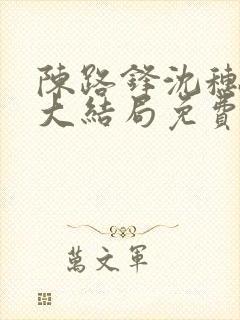 陳路鋒沈穗
大結局免費
萬文軍